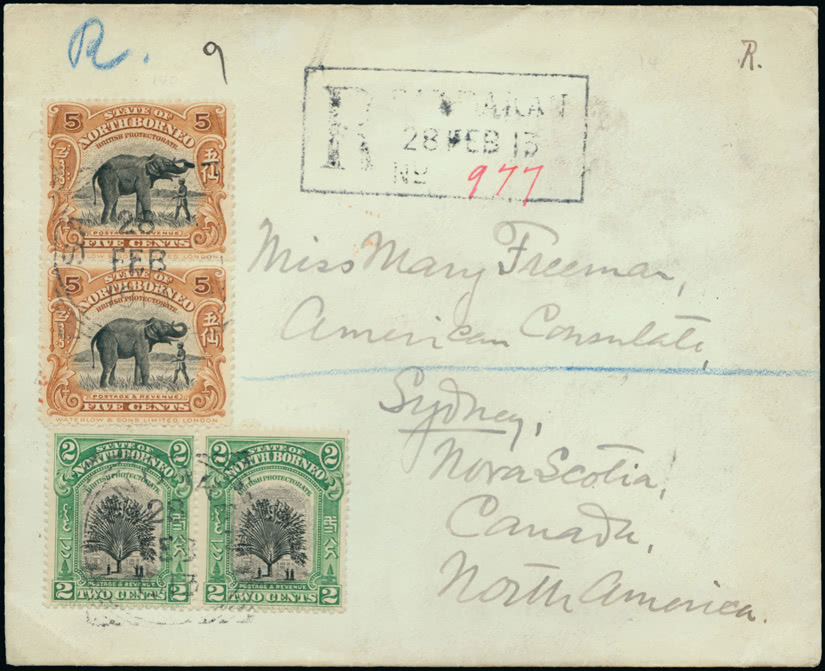 R.
9
R.
R SANDAKAN
28 FEB 13
No 977
5 STATE OF 5
NORTH BORNEO
BRITISH PROTECTORATE
五仙
POSTAGE & REVENUE
FIVE CENTS
WATERLOW & SONS LIMITED LONDON
28
FEB
5 STATE OF 5
NORTH BORNEO
BRITISH PROTECTORATE
五仙
POSTAGE & REVENUE
FIVE CENTS
WATERLOW & SONS LIMITED LONDON
Miss Mary Freeman,
American Consulate,
Sydney,
Nova Scotia,
Canada,
North America.
2 STATE OF 2
NORTH BORNEO
BRITISH PROTECTORATE
POSTAGE & REVENUE
2 TWO CENTS 2
28
2 STATE OF 2
NORTH BORNEO
BRITISH PROTECTORATE
POSTAGE & REVENUE
2 TWO CENTS 2